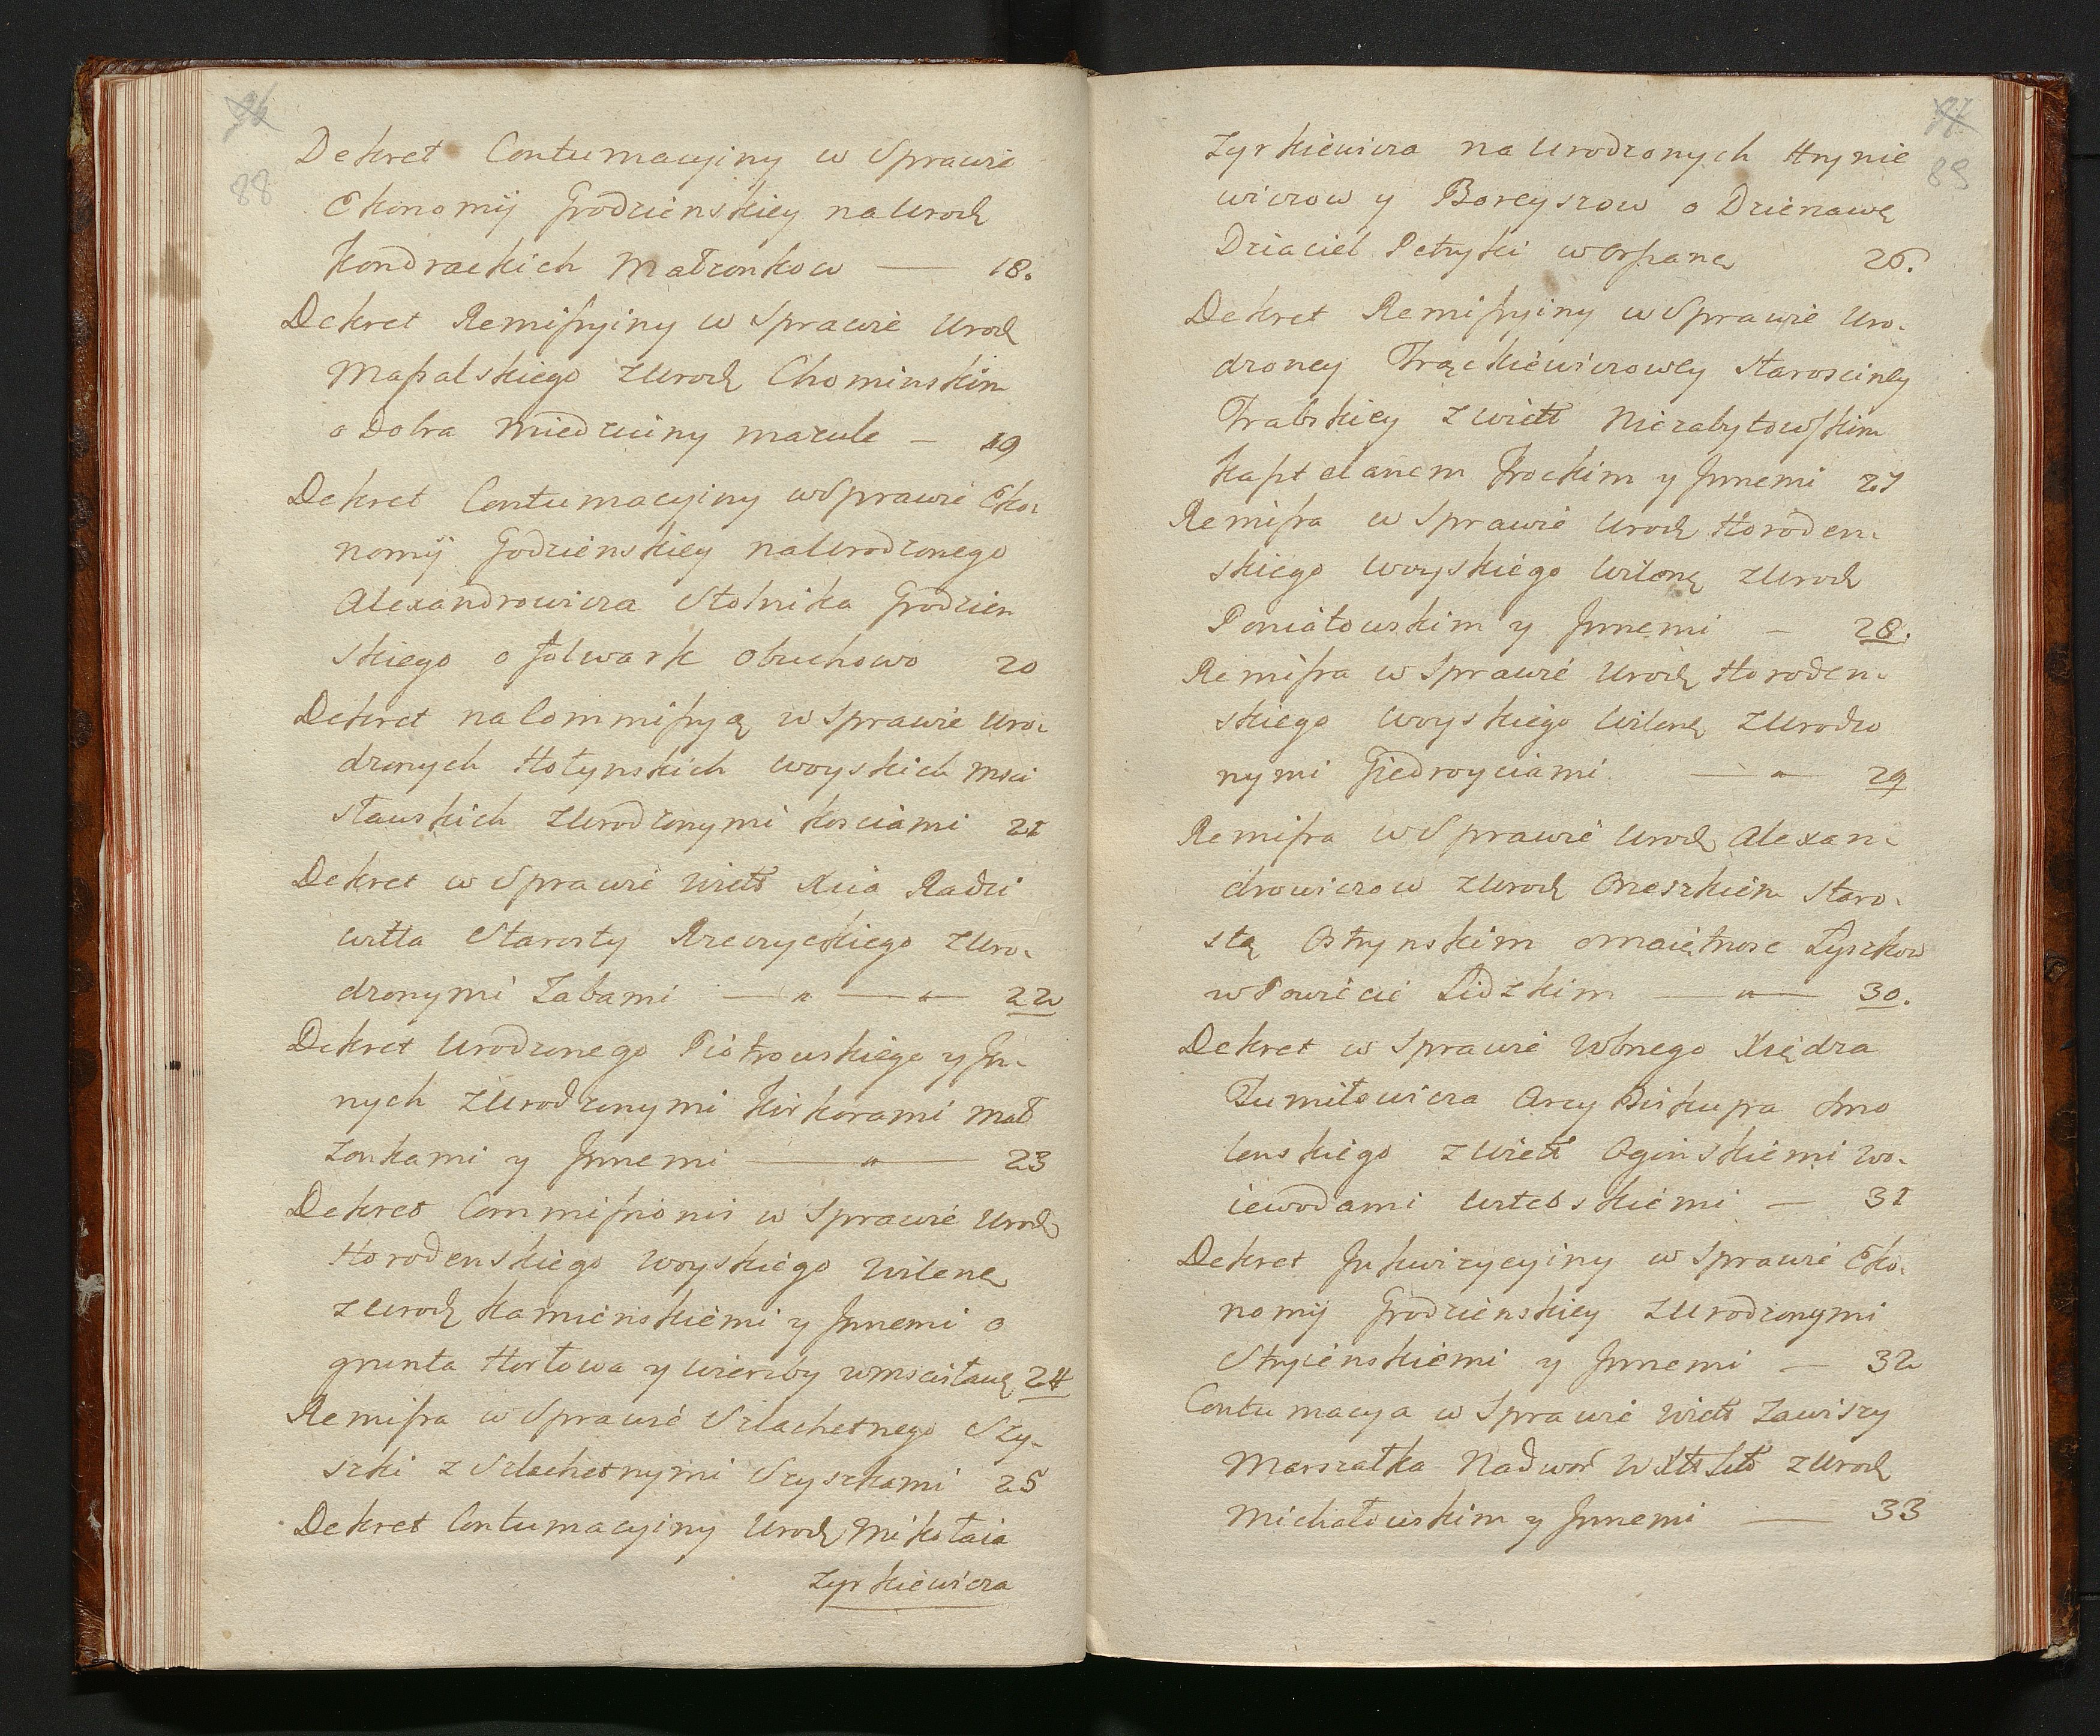 88
Dekret Contumacyiny w Sprawie
Ekonomij Grodzienskiey na Urodz
Kondrackich Małzonkow — 18.
Dekret Remissyiny w Sprawie Urodz
Massalskiego z Urodz Chominskim
o Dobra Miedziuiny mazule — 19
Dekret Contumacyiny w Sprawie Eko-
nomij Godzienskiey na Urodzonego
Alexandrowicza Stolnika Grodzien
skiego o folwark Obuchowo 20
Dekret na Commissyą w Sprawie Uro-
dzonych Hołynskich Woyskich Msci
sławskich z Urodzonymi Kosciami 21
Dekret w Sprawie Wielł Xcia Radzi
wiłła Starosty Rzeczyckiego z Uro-
dzonymi Zabami — " — " — 22
Dekret Urodzonego Piotrowskiego y Jn-
nych z Urodzonymi Kirkorami Mał
zonkami y Jnnemi — " — 23
Dekret Commissionis w Sprawie Urodz
Horodenskiego Woyskiego Wilenę
z Urodz Kamienskiemi y Jnnemi o
grunta Horłowa y Wierzby w Mscisławę 24
Remissa w Sprawie Szlachetnego Szy-
szki z Szlachetnymi Szyszkami 25
Dekret Contumacyiny Urodz Mikołaia
Zyrkiewicza
89
Zyrkiewicza na Urodzonych Hrynie
wiczow y Boreyszow o Dzierzawę
Dziaciel Petryki w Orszanę 26.
Dekret Remissyiny w Sprawie Uro-
dzoney Frąckiewiczowey Staroscinęy
Trabskiey z Wielł Niezabytowskim
Kasztelanem Trockim y Jnnemi 27
Remissa w Sprawie Urodz Horoden-
skiego Woyskiego Wilenę z Urodz
Poniatowskim y Jnnemi — 28.
Remissa w Sprawie Urodz Horoden-
skiego Woyskiego Wilenę z Urodzo
nymi Giedroyciami — " — 29
Remissa w Sprawie Urodz Alexan-
drowiczow z Urodz Orzeszkiem Staro-
stą Ostrynskim o maiętnosc Łyszkow
w Powiecie Lidzkim — " — 30.
Dekret w Sprawie Wbnego Xiędza
Tumiłowicza Arcy Biskupa Smo
lenskiego z Wielł Oginskiemi Wo-
iewodami Witebskiemi — 31
Dekret Jnkwizycyiny w Sprawie Eko-
nomij Grodzienskiey z Urodzonymi
Stryienskiemi y Jnnemi — 32
Contumacya w Sprawie Wielł Zawiszy
Marszałka Nadwor W Xtł Litł z Urodz
Michałowskim y Jnnemi — 33